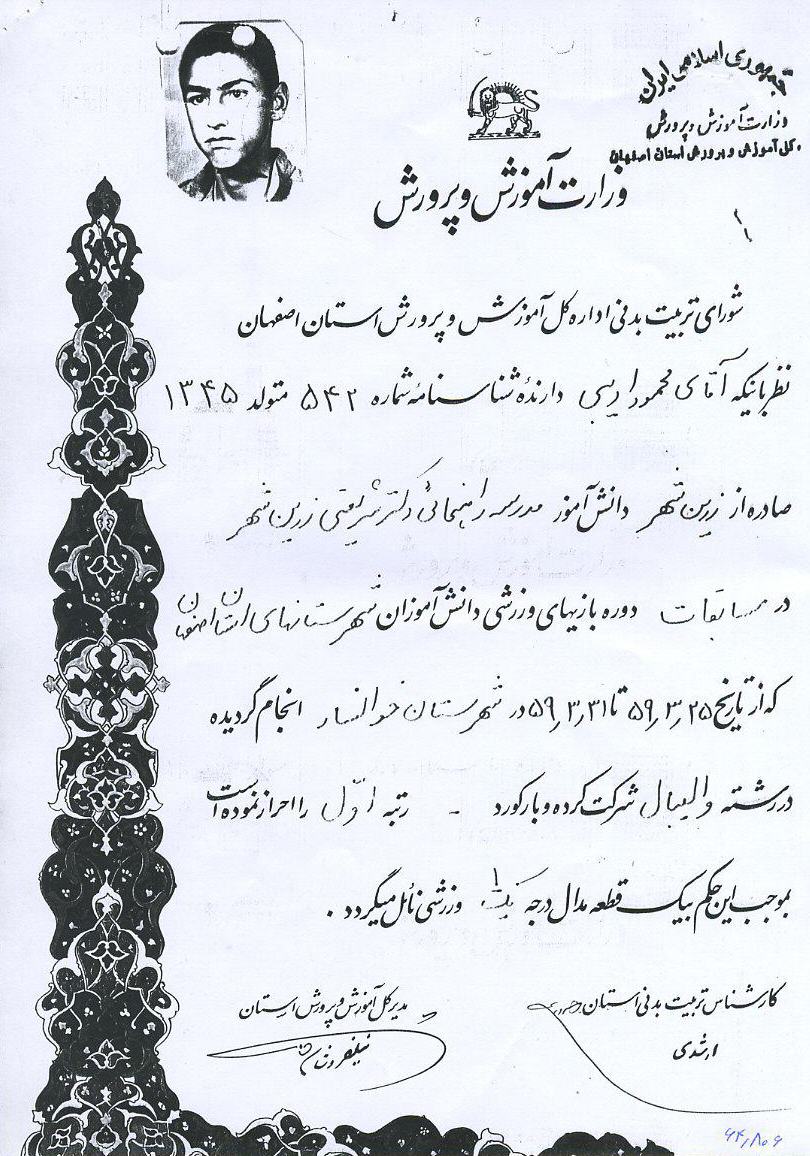 جمهوری اسلامی ایران
وزارت آموزش و پرورش
کل آموزش و پرورش استان اصفهان
وزارت آموزش و پرورش
شورای تربیت بدنی اداره کل آموزش و پرورش استان اصفهان
نظر باینکه آقای محمود ادیبی دارندهٔ شناسنامهٔ شماره ۵۴۲ متولد ۱۳۴۵
صادره از زرین شهر دانش آموز مدرسه راهنمائی دکتر شریعتی زرین شهر
در مسابقات دوره بازیهای ورزشی دانش آموزان شهرستانهای استان اصفهان
که از تاریخ ۵۹٫۳٫۲۵ تا ۵۹٫۳٫۳۱ در شهرستان خوانسار انجام گردیده
در رشته والیبال شرکت کرده و با رکورد - رتبه اوّل را احراز نموده است
بموجب این حکم بیک قطعه مدال درجه یک ۱ ورزشی نائل میگردد .
کارشناس تربیت بدنی استان
مدیر کل آموزش و پرورش استان
ارشدی
نیلفروشان
۶۴٫۸۰۶